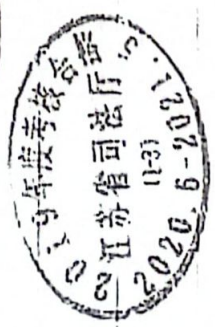 2019年度考核合格
江苏省司法厅
(1-3)
2020.6-2021.5